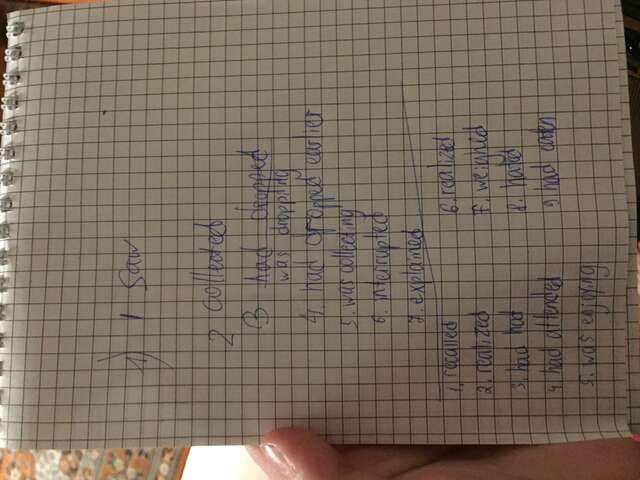 1) 1 Saw
2 collected
3 had dropped
was dropping
4. had dropped earlier
5. was collecting
6. interrupted
7. explained
1. recalled
2. realized
3. had had
4. had attended
5. was enjoying
6. realized
7. weighed
8. hated
9. had eaten